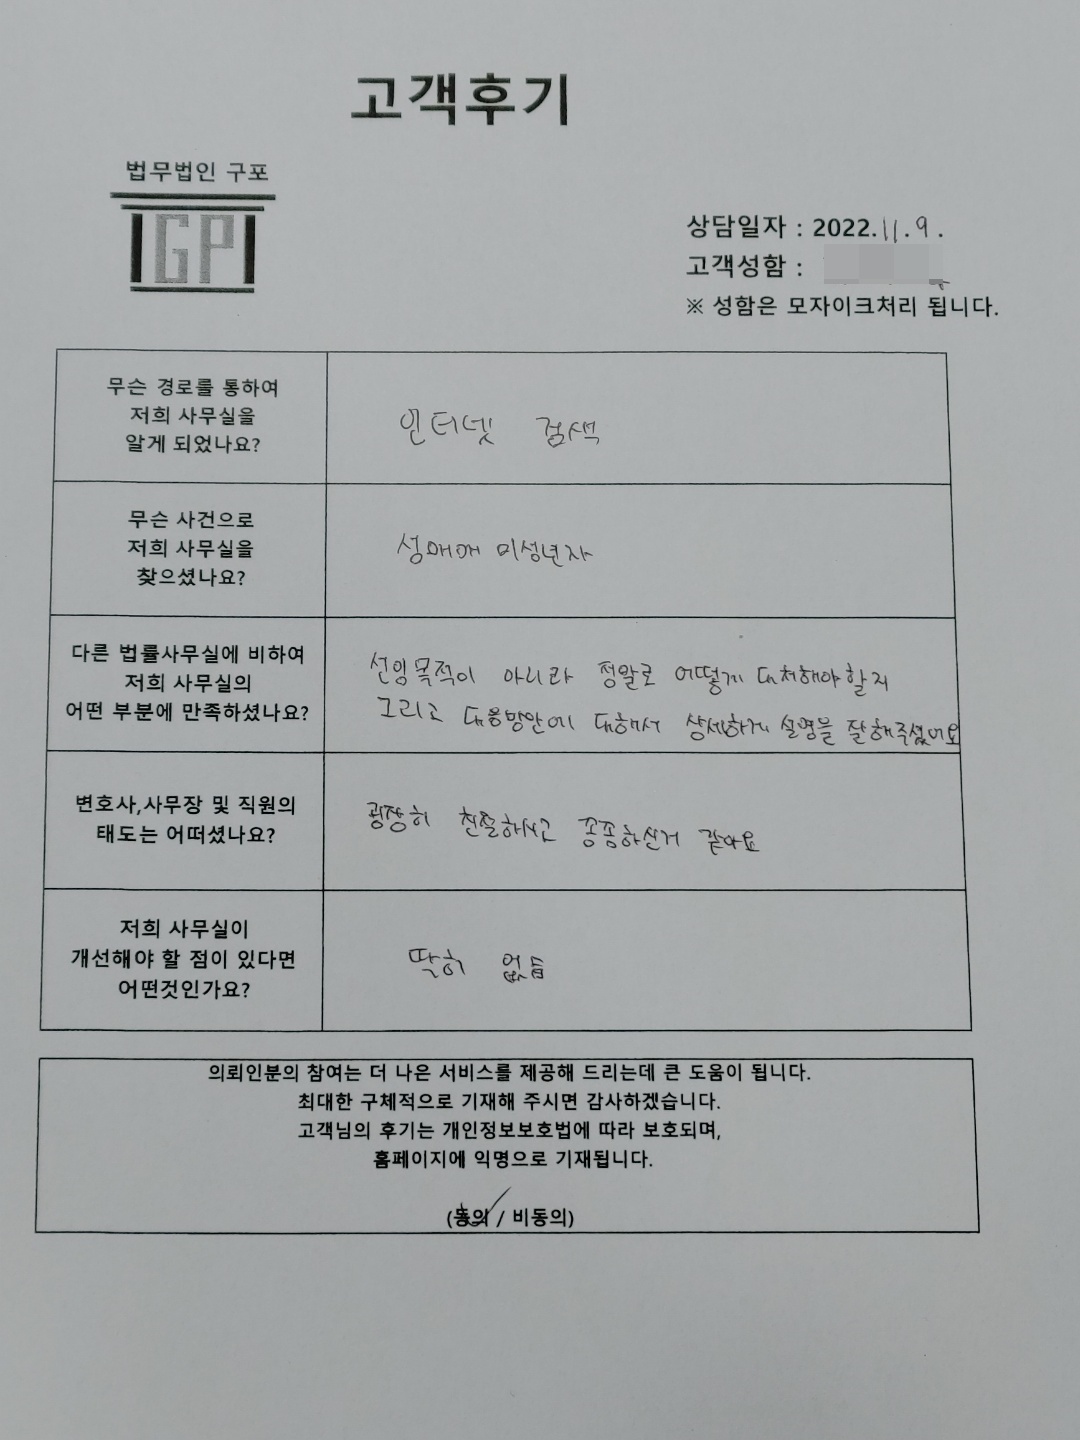 고객후기
법무법인 구포
GP
상담일자 : 2022.11.9.
고객성함 :
※ 성함은 모자이크처리 됩니다.
무슨 경로를 통하여
저희 사무실을
알게 되었나요?
인터넷 검색
무슨 사건으로
저희 사무실을
찾으셨나요?
성매매 미성년자
다른 법률사무실에 비하여
저희 사무실의
어떤 부분에 만족하셨나요?
선임목적이 아니라 정말로 어떻게 대처해야할지
그리고 대응방안에 대해서 상세하게 설명을 잘해주셨어요
변호사,사무장 및 직원의
태도는 어떠셨나요?
굉장히 친절하시고 꼼꼼하신거 같아요
저희 사무실이
개선해야 할 점이 있다면
어떤것인가요?
딱히 없음
의뢰인분의 참여는 더 나은 서비스를 제공해 드리는데 큰 도움이 됩니다.
최대한 구체적으로 기재해 주시면 감사하겠습니다.
고객님의 후기는 개인정보보호법에 따라 보호되며,
홈페이지에 익명으로 기재됩니다.
(동의 / 비동의)